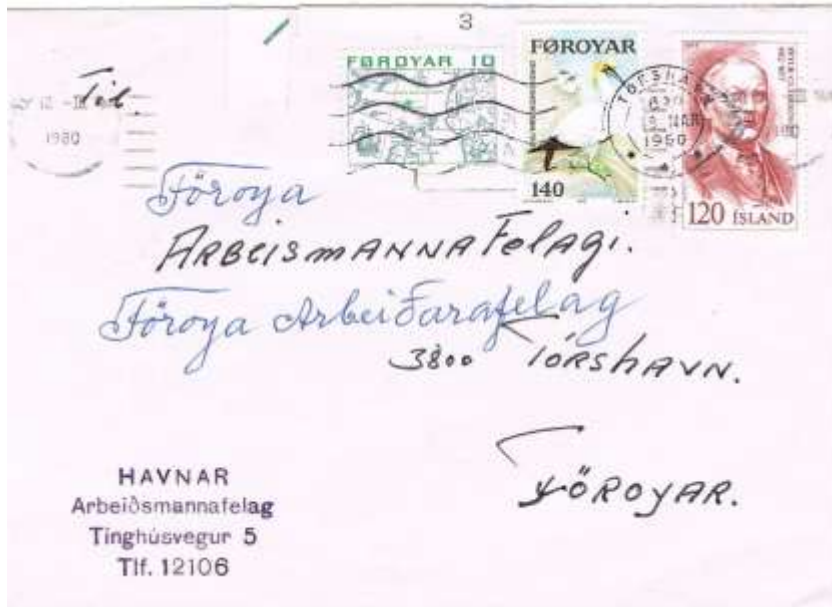 3
Til.
12 -III
1980
FØROYAR 10
FØROYAR
140
TÓRSHAVN
1980
120 ÍSLAND
Föroya
ARBEISMANNAFELAGI.
Föroya Arbeiðarafelag
3800 TÓRSHAVN.
FÖROYAR.
HAVNAR
Arbeiðsmannafelag
Tinghúsvegur 5
Tlf. 12106